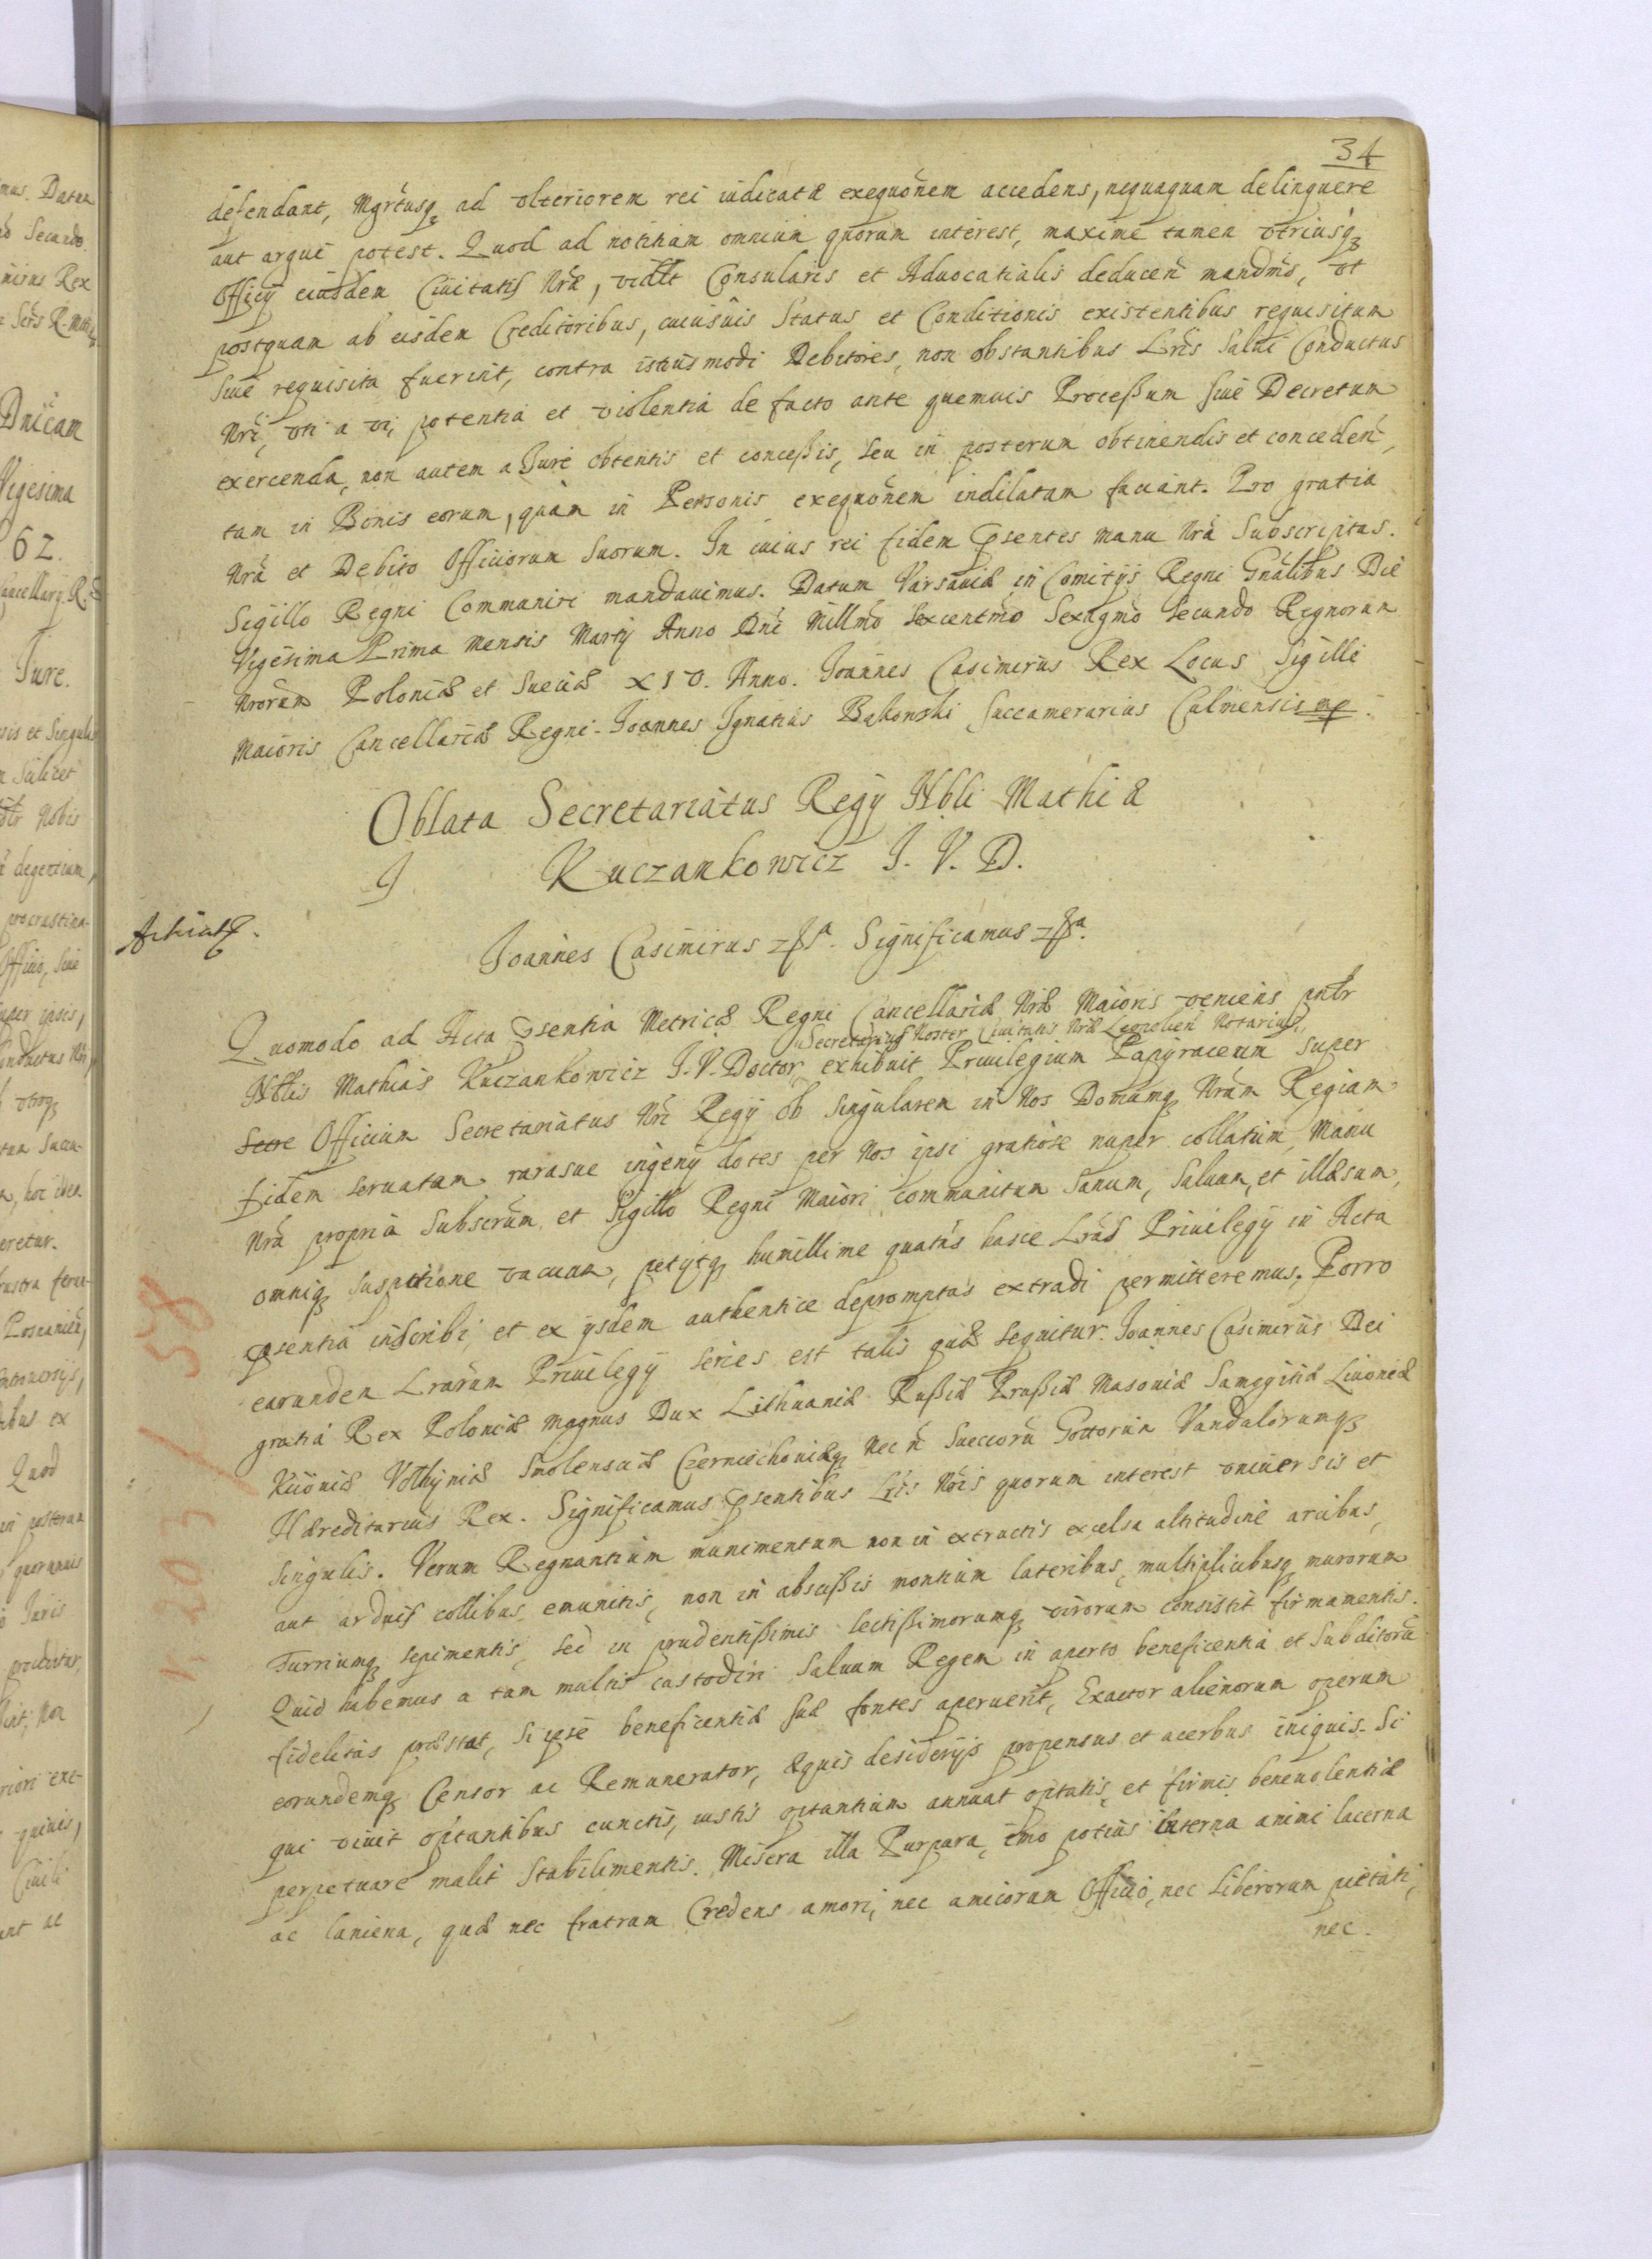 34
defendant, Mgrtusq ad ulteriorem rei iudicatæ exequonem accedens, nequaquam delinquere
aut argui potest. Quod ad notitiam omnium quorum interest, maxime tamen utriusq
Officij eiusdem Ciuitatis Nræ, vidlt Consularis et Aduocatialis deducen mandmo, ut
postquam ab eisdem Creditoribus, cuiusuis Status et Conditionis existentibus requisitum
siue requisita fuerint, contra istiusmodi Debitores, non obstantibus Lris Salui Conductus
Nri, uti a vi, potentia et violentia de facto ante quemuis Processum siue Decretum
exercenda, non autem a Jure obtentis et concessis, seu in posterum obtinendis et conceden,
tam in Bonis eorum, quam in Personis exequonem indilatam faciant. Pro gratia
Nra et Debito Officiorum Suorum. In cuius rei fidem psentes manu Nra Subscriptas.
Sigillo Regni Communiri mandauimus. Datum Varsauiæ in Comitijs Regni Gnalibus Die
Vigesima Prima Mensis Martij Anno Dni Millmo Sexcentmo Sexagmo Secundo Regnorum
Nrorum Poloniæ et Sueciæ XIV. Anno. Joannes Casimirus Rex Locus Sigilli
Maioris Cancellariæ Regni. Joannes Ignatius Bąkowski Succamerarius Culmensis mp.
Oblata Secretariatus Regij Nbli Mathiæ
Kuczankowicz J. V. D.
Joannes Casimirus Significamus
Quomodo ad Acta psentia Metrices Regni Cancellariæ Nræ Maioris veniens pntr
Secretarius Noster Ciuitatis Nræ Leopolien Notarius
Nblis Mathias Kuczankowicz J. V. Doctor, exhibuit Priuilegium Papyraceum super
Secre Officium Secretariatus Nri Regij ob Singularem in Nos Domumq Nram Regiam
fidem seruatam rarasue ingenij dotes per Nos ipsi gratiose nuper collatum, Manu
Nra propria Subscrum et Sigillo Regni Maiori communitum Sanum, Saluum, et illæsum,
omniq suspitione vacuum, petijtq humillime quatus hasce Lras Priuilegij in Acta
psentia inscribi, et ex ijsdem authentice depromptas extradi permitteremus. Porro
earundem Lrarum Priuilegij series est talis quæ sequitur. Joannes Casimirus Dei
gratia Rex Poloniæ Magnus Dux Lithuaniæ Russiæ Prussiæ Masouiæ Samogitiæ Liuoniæ
Kiiouiæ Volhyniæ Smolensciæ Czerniechouiæq Nec n Suecorum Gottorum Vandalorumq
Hæreditarius Rex. Significamus psentibus Lris Nris quorum interest vniuersis et
singulis. Verum Regnantium munimentum non in extructis excelsa altitudine arcibus,
aut arduis collibus emunitis, non in abscissis montium lateribus, multiplicibusq murorum
Turriumq sepimentis, sed in prudentissimis lectissimorumq virorum consistit firmamentis.
Quid habemus a tam multis custodiri Saluum Regem in aperto beneficentia et Subditorum
fidelitas præstat, Si ipse beneficentiæ suæ fontes aperuerit, Exactor alienorum operum
eorundemq Censor ac Remunerator, æquis desiderijs propensus et acerbus iniquis. Si
qui viuit optantibus cunctis, iustis optantium annuat optatis, et firmis beneuolentiæ
perpetuare malit Stabilimentis. Misera illa Purpura, imo potius interna animi lacerna
ac laniena, quæ nec fratrum Credens amori, nec amicorum Officio, nec Liberorum pietati,
nec.